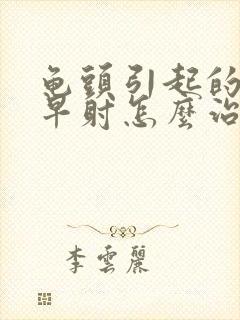 龟頭引起的
早射怎麽治
李雲麗